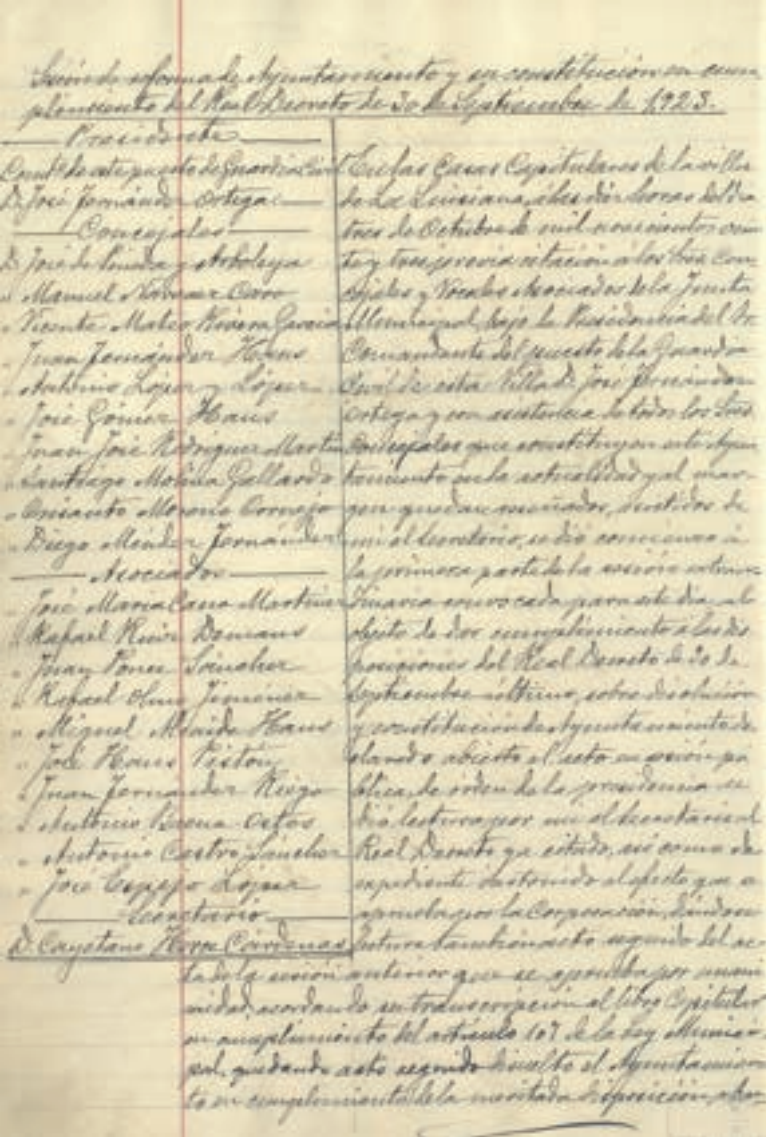 Sesión de reforma de Ayuntamiento y su constitución en cum
plimiento del Real Decreto de 30 de Septiembre de 1,923.
Presidente
Comte. de este puesto de Guardia Civil
D. José Fernández Ortega
Concejales
D. José de Pineda y Arboleya
" Manuel Narvaez Caro
" Vicente Mateo Rivera Garcia
" Juan Fernández Hans
" Antonio López y López
" José Gómez Hans
" Juan José Rodriguez Martin
" Santiago Molina Gallardo
" Crisanto Moreno Cornejo
" Diego Mendez Fernández
Asociados
" José Maria Cano Martinez
" Rafael Ruiz Demans
" Juan Ponce Sánchez
" Rafael Jimenez
" Miguel Hans
" José Hans Pistón
" Juan Fernández Riego
" Antonio Baena Ostos
" Antonio Castro Sánchez
" José Espejo López
Secretario
D. Cayetano Cárdenas
En las Casas Capitulares de la villa
de La Luisiana, á las diez horas del dia
tres de Octubre de mil novecientos vein
te y tres, previa citación a los Sres. Con
cejales y Vocales Asociados de la Junta
Municipal, bajo la Presidencia del Sr.
Comandante del puesto de la Guardia
Civil de esta Villa D. José Fernández
Ortega y con asistencia de todos los Sres.
Concejales que constituyen este Ayun
tamiento en la actualidad y al mar
gen quedan reseñados, asistidos de
mi el Secretario, se dió comienzo á
la primera parte de la sesión extraor
dinaria convocada para este dia, al
objeto de dar cumplimiento a las dis
posiciones del Real Decreto de 30 de
Septiembre último, sobre disolución
y constitución de Ayuntamiento de
clarado abierto el acto en sesión pú
blica, de orden de la presidencia se
dió lectura por mi el Secretario al
Real Decreto ya citado, asi como de
expediente instruido al efecto que se
aprueba por la Corporación, dándose
lectura también acto seguido del ac
ta de la sesión anterior que se aprueba por unani
midad, acordando su transcripción al libro Capitular
en cumplimiento del articulo 107 de la Ley Munici
pal, quedando acto seguido disuelto el Ayuntamien
to en cumplimiento de la meritada disposición,